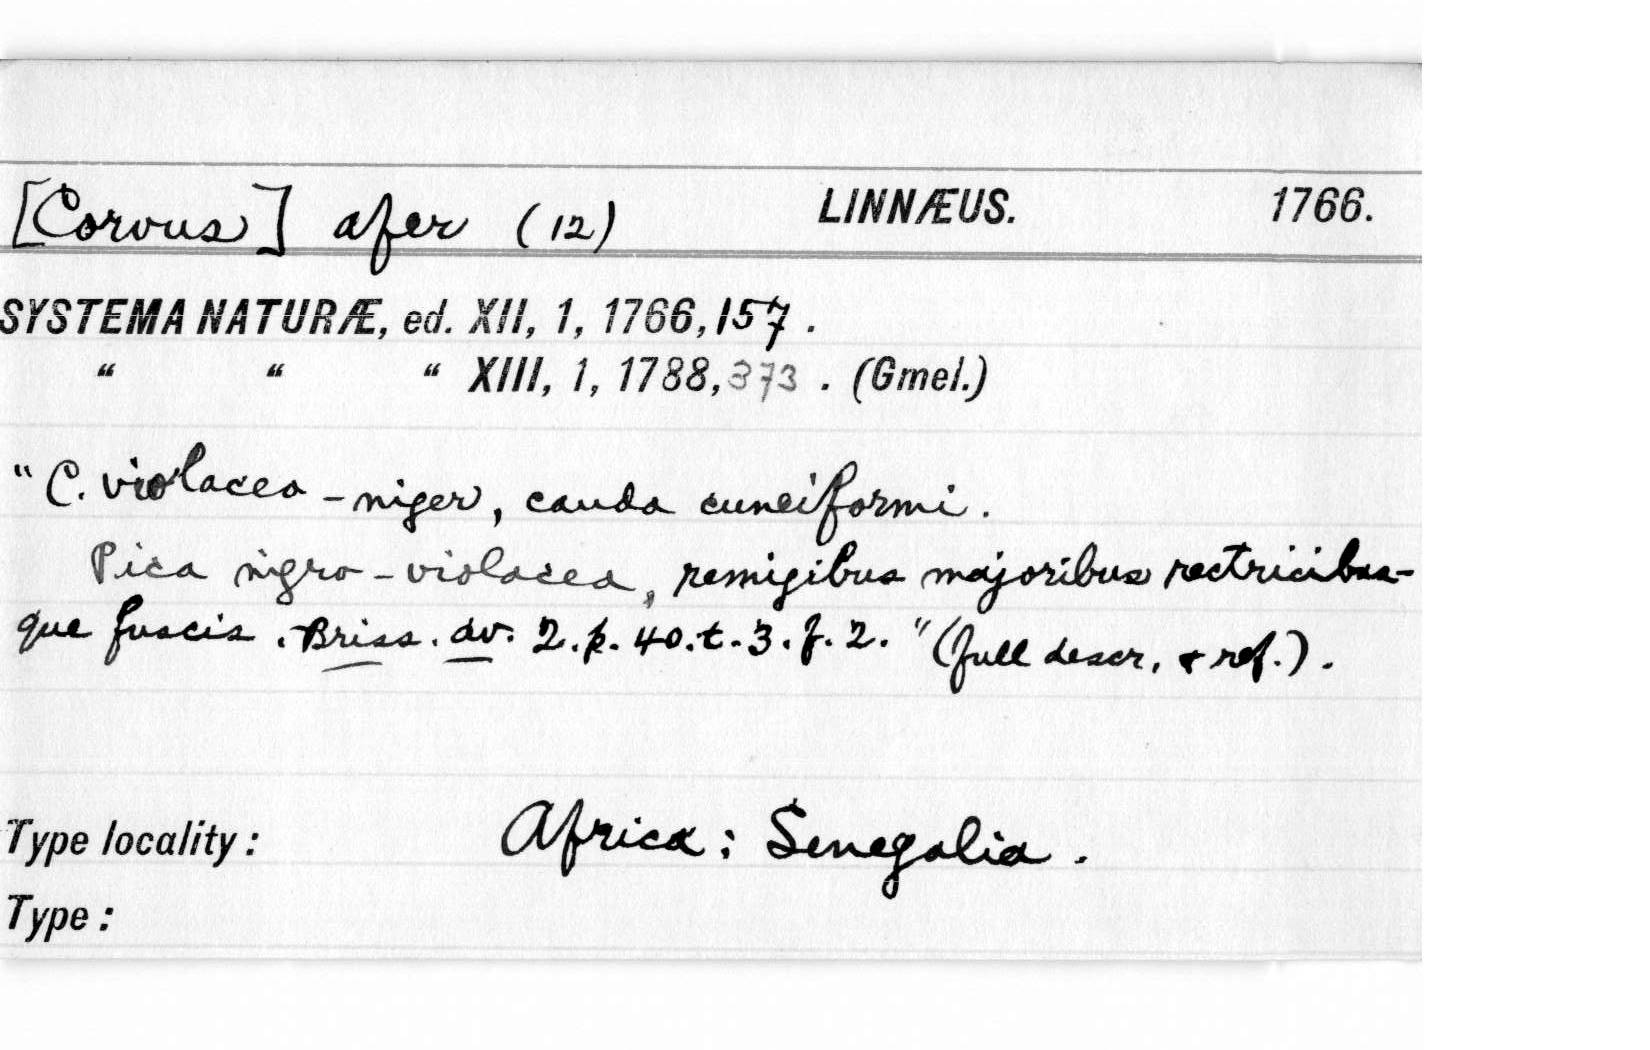 [Corvus] afer (12) LINNÆUS. 1766.
SYSTEMA NATURÆ, ed. XII, 1, 1766, 157.
" " " XIII, 1, 1788, 373. (Gmel.)
"C. violaceo-niger, cauda cuneiformi.
Pica nigro-violacea, remigibus majoribus rectricibus-
que fuscis. Briss. av. 2. p. 40. t. 3. f. 2." (full descr. & ref.).
Type locality: Africa; Senegalia.
Type: